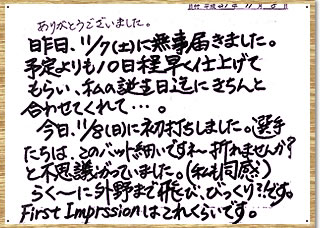 日付 平成21年11月8日
ありがとうございました。
昨日、11/7(土)に無事届きました。
予定よりも10日程早く仕上げて
もらい、私の誕生日迄にきちんと
合わせてくれて…。
今日、11/8(日)に初打ちしました。選手
たちは、このバット細いですネ〜折れませんか?
と不思議がっていました。(私も同感)
らく〜に外野まで飛び、びっくり?です。
First Imprssionはこれくらいです。